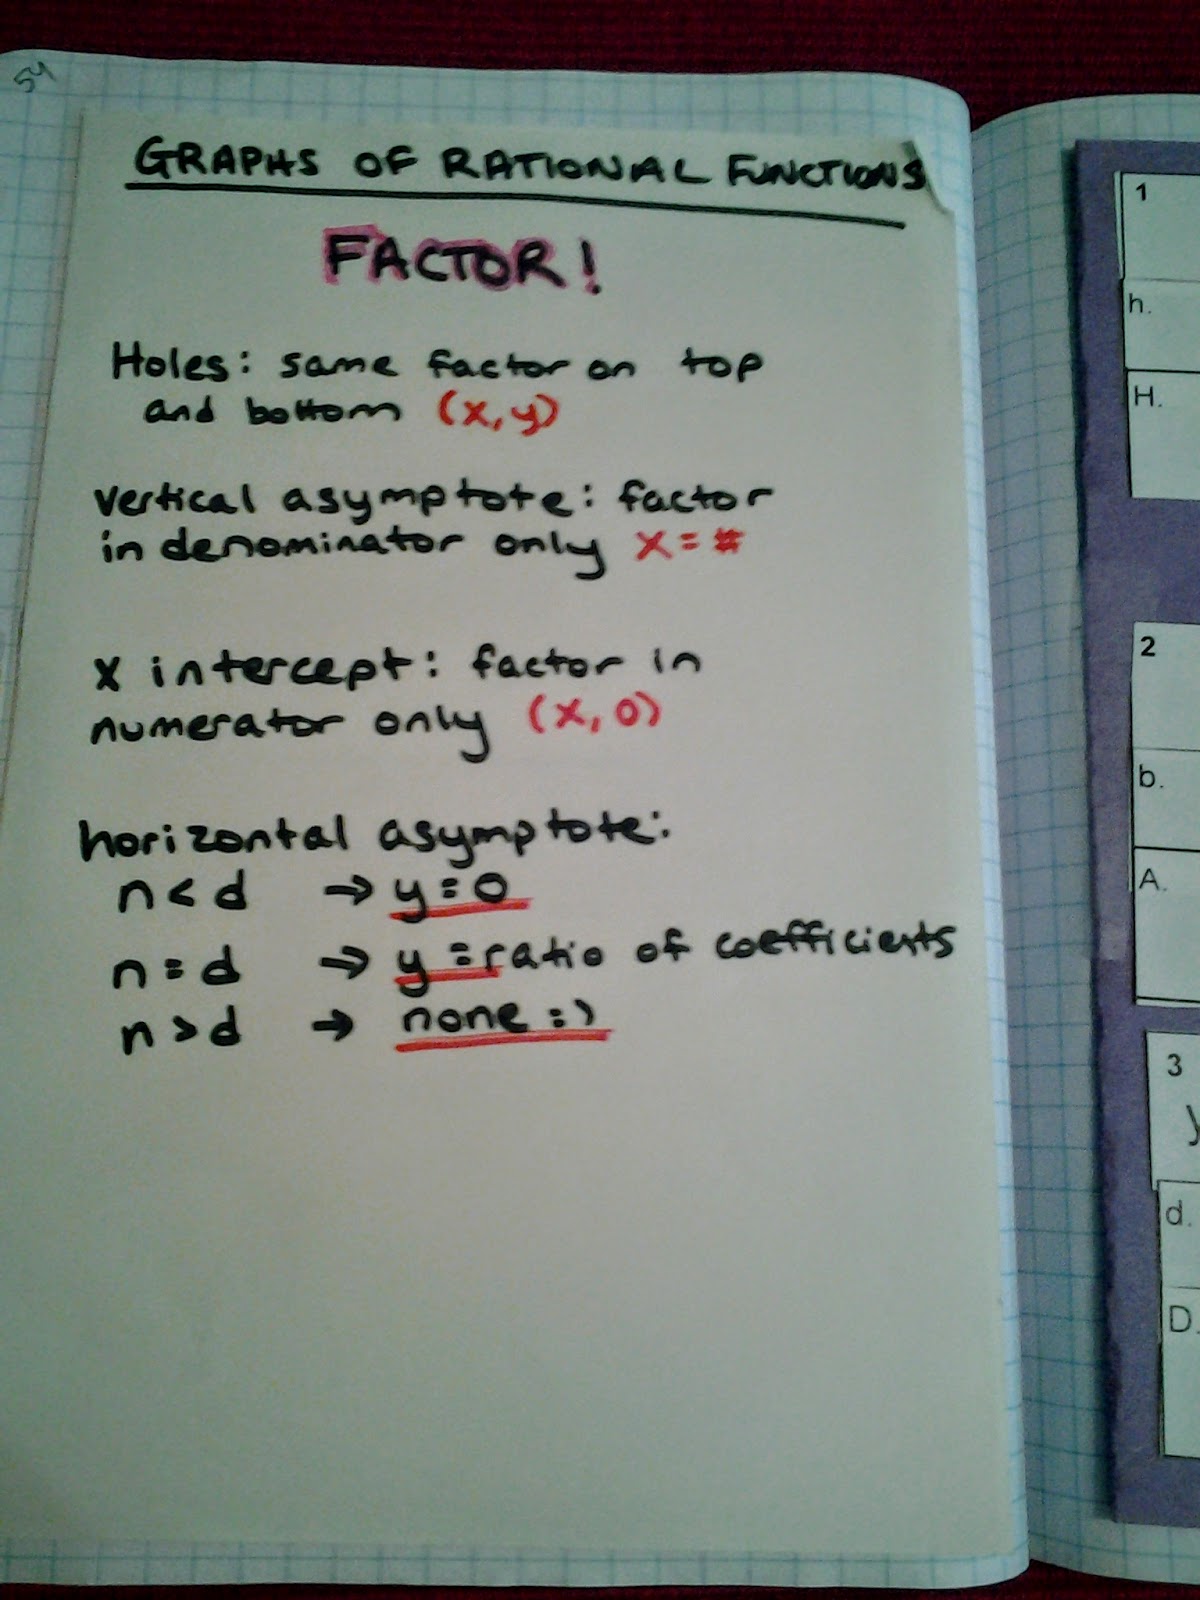 54
GRAPHS OF RATIONAL FUNCTIONS
FACTOR!
Holes: same factor on top
and bottom (x,y)
vertical asymptote: factor
in denominator only x=#
x intercept: factor in
numerator only (x,0)
horizontal asymptote:
n<d → y=0
n=d → y=ratio of coefficients
n>d → none :)
1
h.
H.
2
b.
A.
3
y
d.
D.